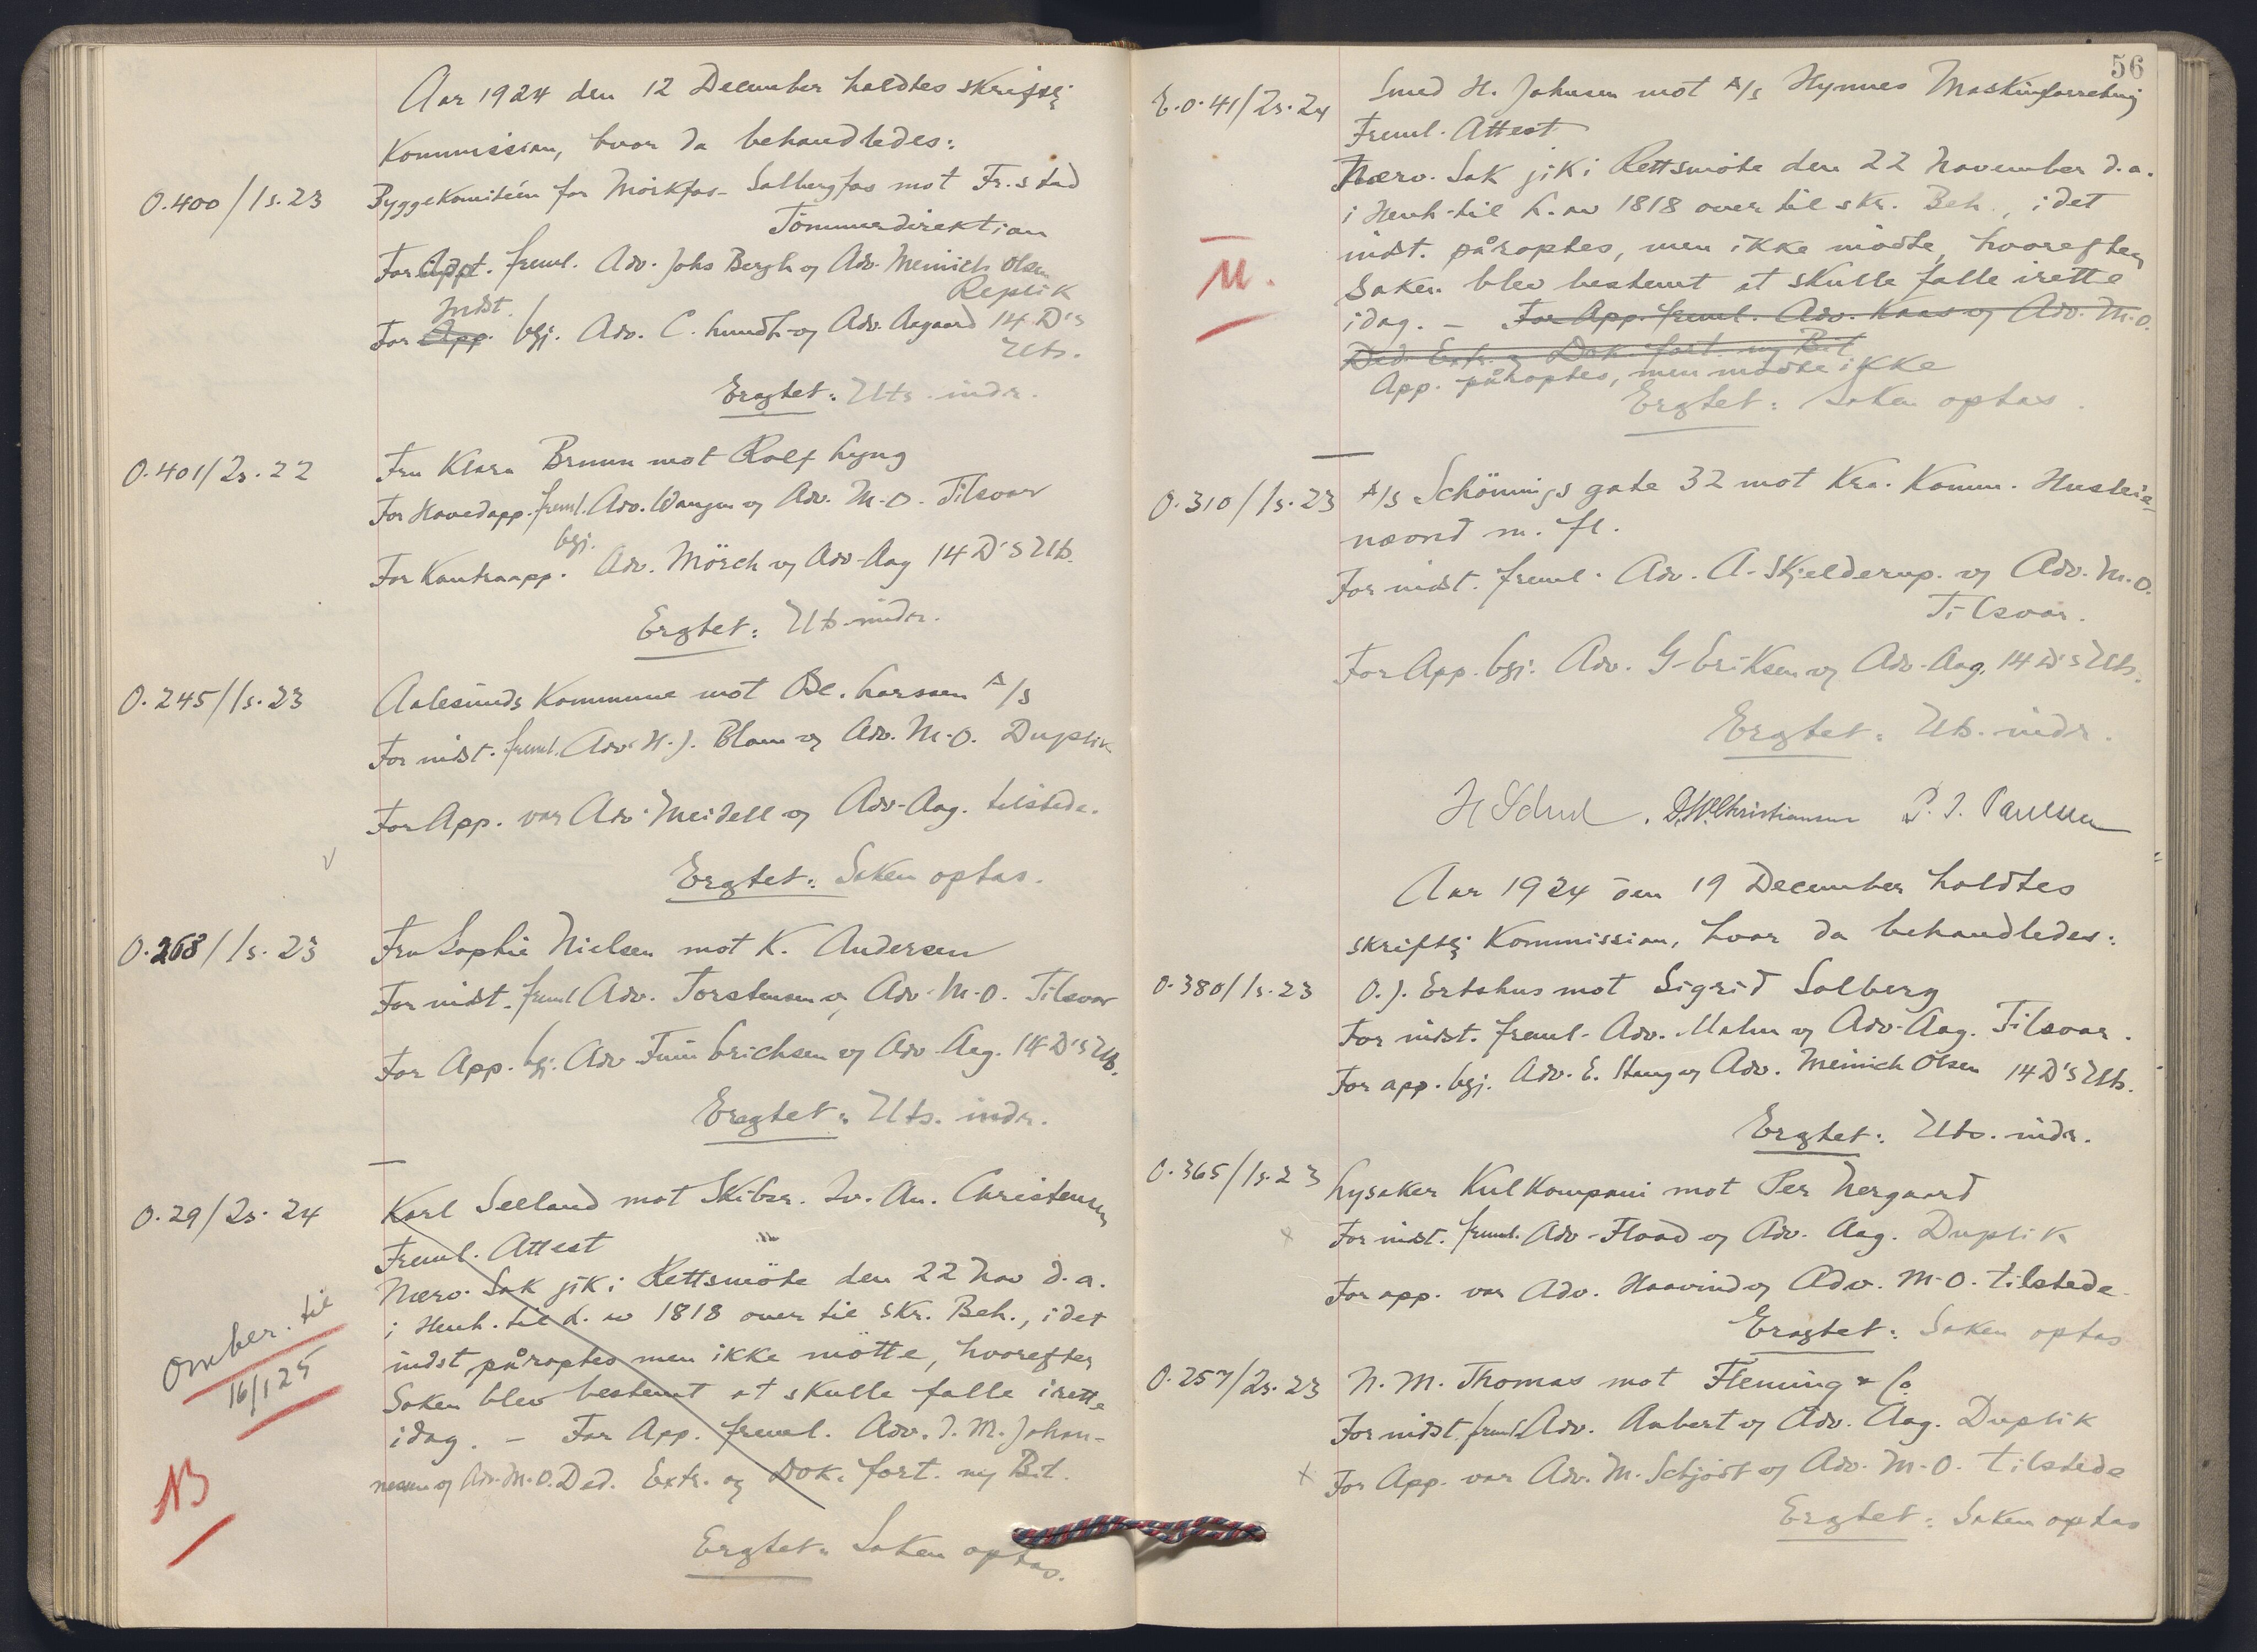 Aar 1924 den 12 December holdtes skriftlj
Kommission, hvor da behandledes:
O.400/1s.23 Byggekomitéen for Mörkfos-Solbergfos mot Fr.stad
Tömmerdirektion
For Appt. freml. Adv. Johs Bergh og Adv. Meinich Olsen
Replik
Indst.
For App. bgj. Adv. C. Lundh og Adv. Aagaard 14 D's
Uts.
Eragtet: Uts. indr.
O.401/2s.22 Fru Klara Bruun mot Rolf Lyng
For Hovedapp. freml. Adv. Wangen og Adv. M.O. Tilsvar
For Kontraapp. bgj. Adv. Mörch og Adv. Aag 14 D's Uts.
Ergtet: Uts. indr.
O.245/1s.23 Aalesunds Kommune mot Ole Larssen A/S
For indst. freml. Adv. H.J. Blom og Adv. M.O. Duplik
For App. var Adv. Meidell og Adv. Aag. tilstede.
Ergtet: Saken optas.
O.268/1s.23 Fru Sophie Nielsen mot K. Andersen
For indst. freml Adv. Torstensen og Adv. M.O. Tilsvar
For App. bgj. Adv Finn Erichsen og Adv Aag. 14 D's Uts.
Eragtet: Uts. indr.
O.29/2s.24 Karl Seeland mot Skibsr. Iv. An. Christensen
Freml. Attest
Nærv. Sak gik i Rettsmöte den 22 Nov d.a.
i Henh. til L. av 1818 over til skr. Beh., idet
indst påroptes men ikke mötte, hvorefter
Saken blev bestemt at skulle falle irette
idag. – For App. freml. Adv. J.M. Johan-
nesen og Adv. M.O. Ded. Extr. og Dok. fort. ny Bil.
Omber. til
16/1 25
NB
Ergtet: Saken optas.
56
E.O.41/2s.24 Smed H. Johnsen mot A/S Hynnes Maskinforretning
Freml. Attest
Nærv. Sak gik i Rettsmöte den 22 November d.a.
i Henh. til L. av 1818 over til skr. Beh., idet
indst. påroptes, men ikke mödte, hvorefter
Saken blev bestemt at skulle falle irette
M.
idag. – For App. freml. Adv. Kaas og Adv. M.O.
Ded. Extr. og Dok. fort. ny Bil
App. påroptes, men mödte ikke
Ergtet: Saken optas.
O.310/1s.23 A/S Schönnings gate 32 mot Kra. Komm. Husleie-
nævnd m. fl.
For indst. freml. Adv. A. Skjelderup og Adv. M.O.
Tilsvar.
For App. bgj. Adv. G. Eriksen og Adv. Aag. 14 D's Uts.
Ergtet: Uts. indr.
D.W. Christiansen P. I. Paulsen
Aar 1924 den 19 December holdtes
skriftlj Kommission, hvor da behandledes:
O.380/1s.23 O.J. Ertshus mot Sigrid Solberg
For indst. freml. Adv. Malm og Adv. Aag. Tilsvar.
For app. bgj. Adv. E. Stang og Adv. Meinich Olsen 14 D's Uts.
Ergtet: Uts. indr.
O.365/1s.23 Lysaker Kulkompani mot Per Nergaard
x For indst. freml. Adv. Flood og Adv. Aag. Duplik
For app. var Adv. Haavind og Adv. M.O. tilstede
Eragtet: Saken optas
O.257/2s.23 N.M. Thomas mot Fleming & Co
For indst. freml. Adv. Aubert og Adv. Aag. Duplik
x For App. var Adv. M. Schjödt og Adv. M.O. tilstede
Ergtet: Saken optas